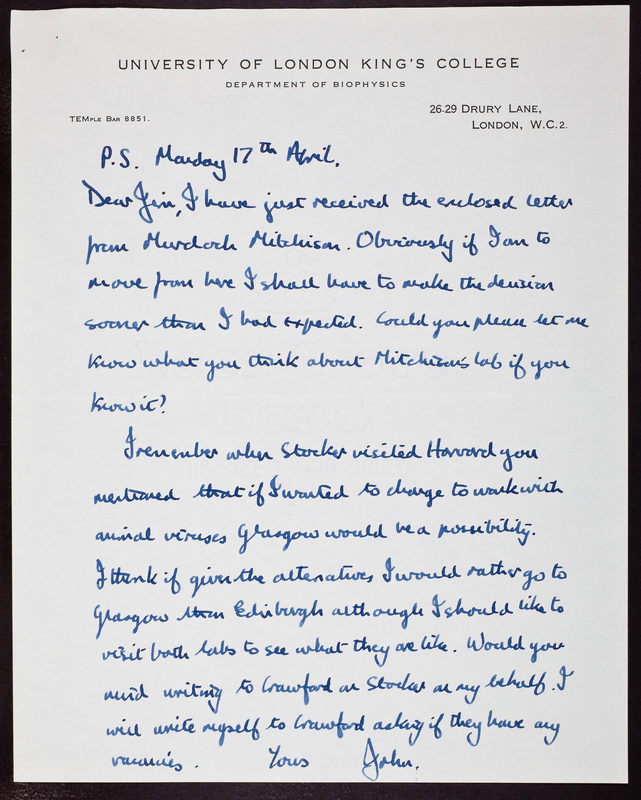 UNIVERSITY OF LONDON KING'S COLLEGE
DEPARTMENT OF BIOPHYSICS
TEMPLE BAR 8851.
26-29 DRURY LANE,
LONDON, W.C.2.
P.S. Monday 17th April.
Dear Jim, I have just received the enclosed letter
from Murdoch Mitchison. Obviously if I am to
move from here I shall have to make the decision
sooner than I had expected. Could you please let me
know what you think about Mitchison's lab if you
know it?
I remember when Stocker visited Harvard you
mentioned that if I wanted to change to work with
animal viruses Glasgow would be a possibility.
I think if given the alternatives I would rather go to
Glasgow than Edinburgh although I should like to
visit both labs to see what they are like. Would you
mind writing to Crawford or Stocker on my behalf. I
will write myself to Crawford asking if they have any
vacancies. Yours John.